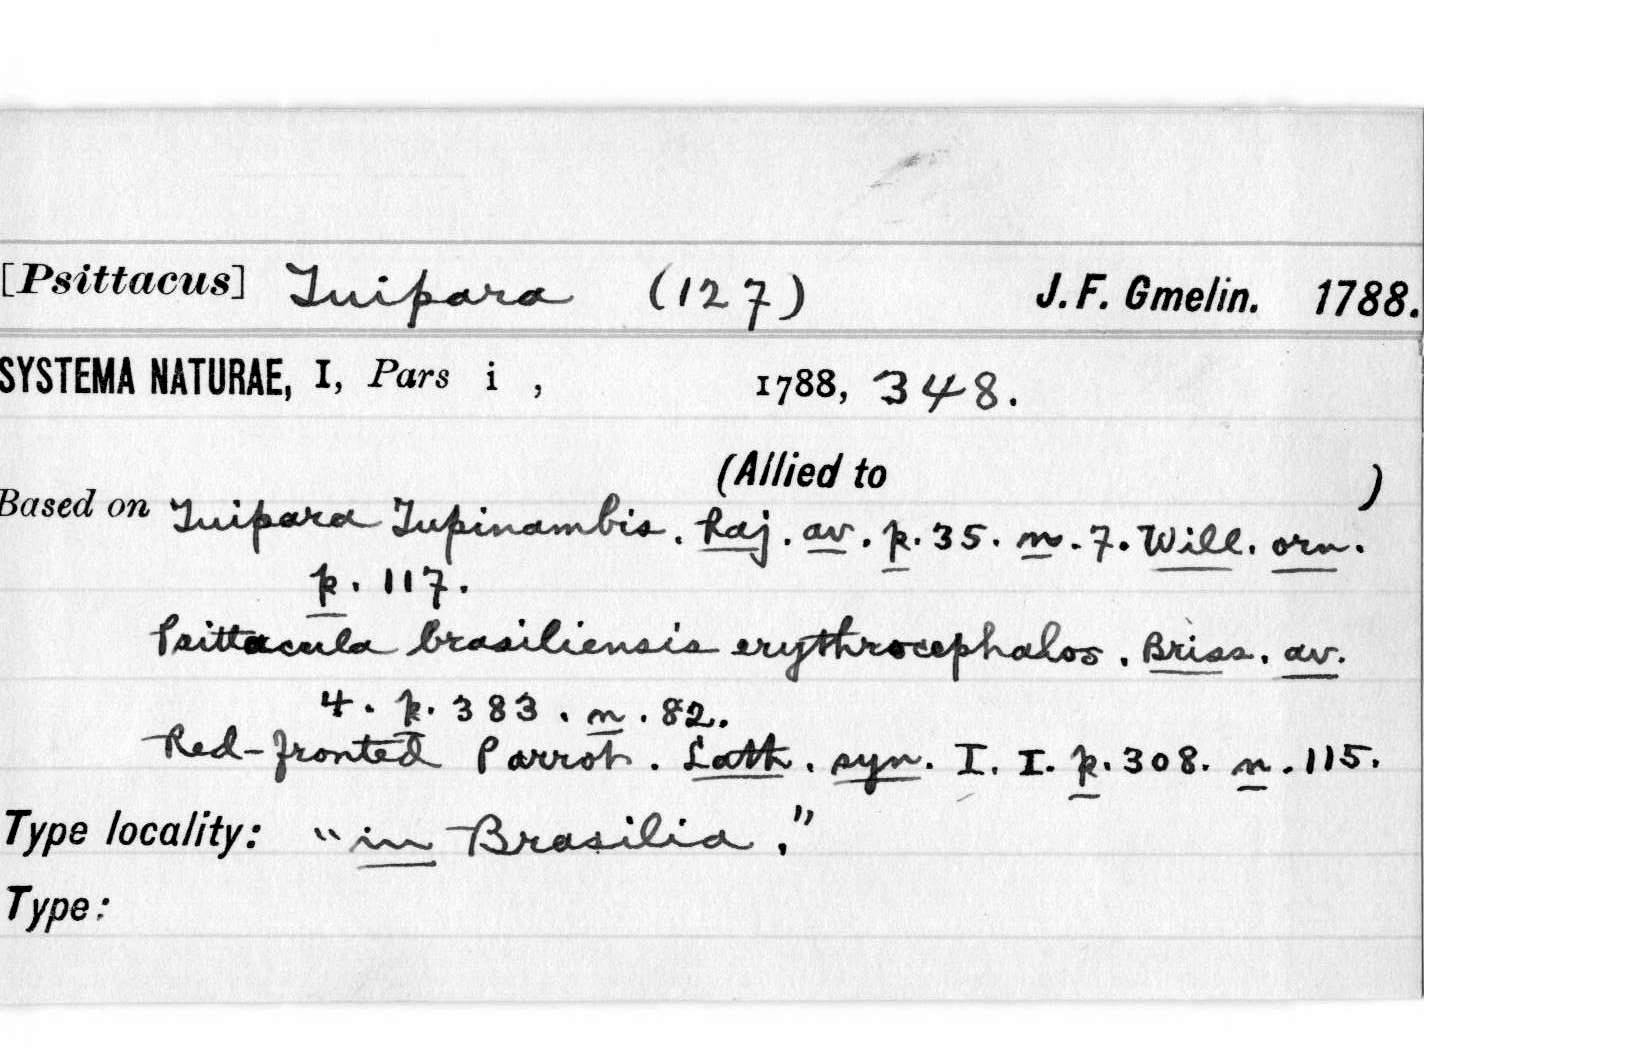 [Psittacus] Tuipara (127) J. F. Gmelin. 1788.
SYSTEMA NATURAE, I, Pars i , 1788, 348.
(Allied to )
Based on Tuipara Tupinambis. Raj. av. p. 35. n. 7. Will. orn.
p. 117.
Psittacula brasiliensis erythrocephalos. Briss. av.
4. p. 383. n. 82.
Red-fronted Parrot. Lath. syn. I. I. p. 308. n. 115.
Type locality: "in Brasilia."
Type: